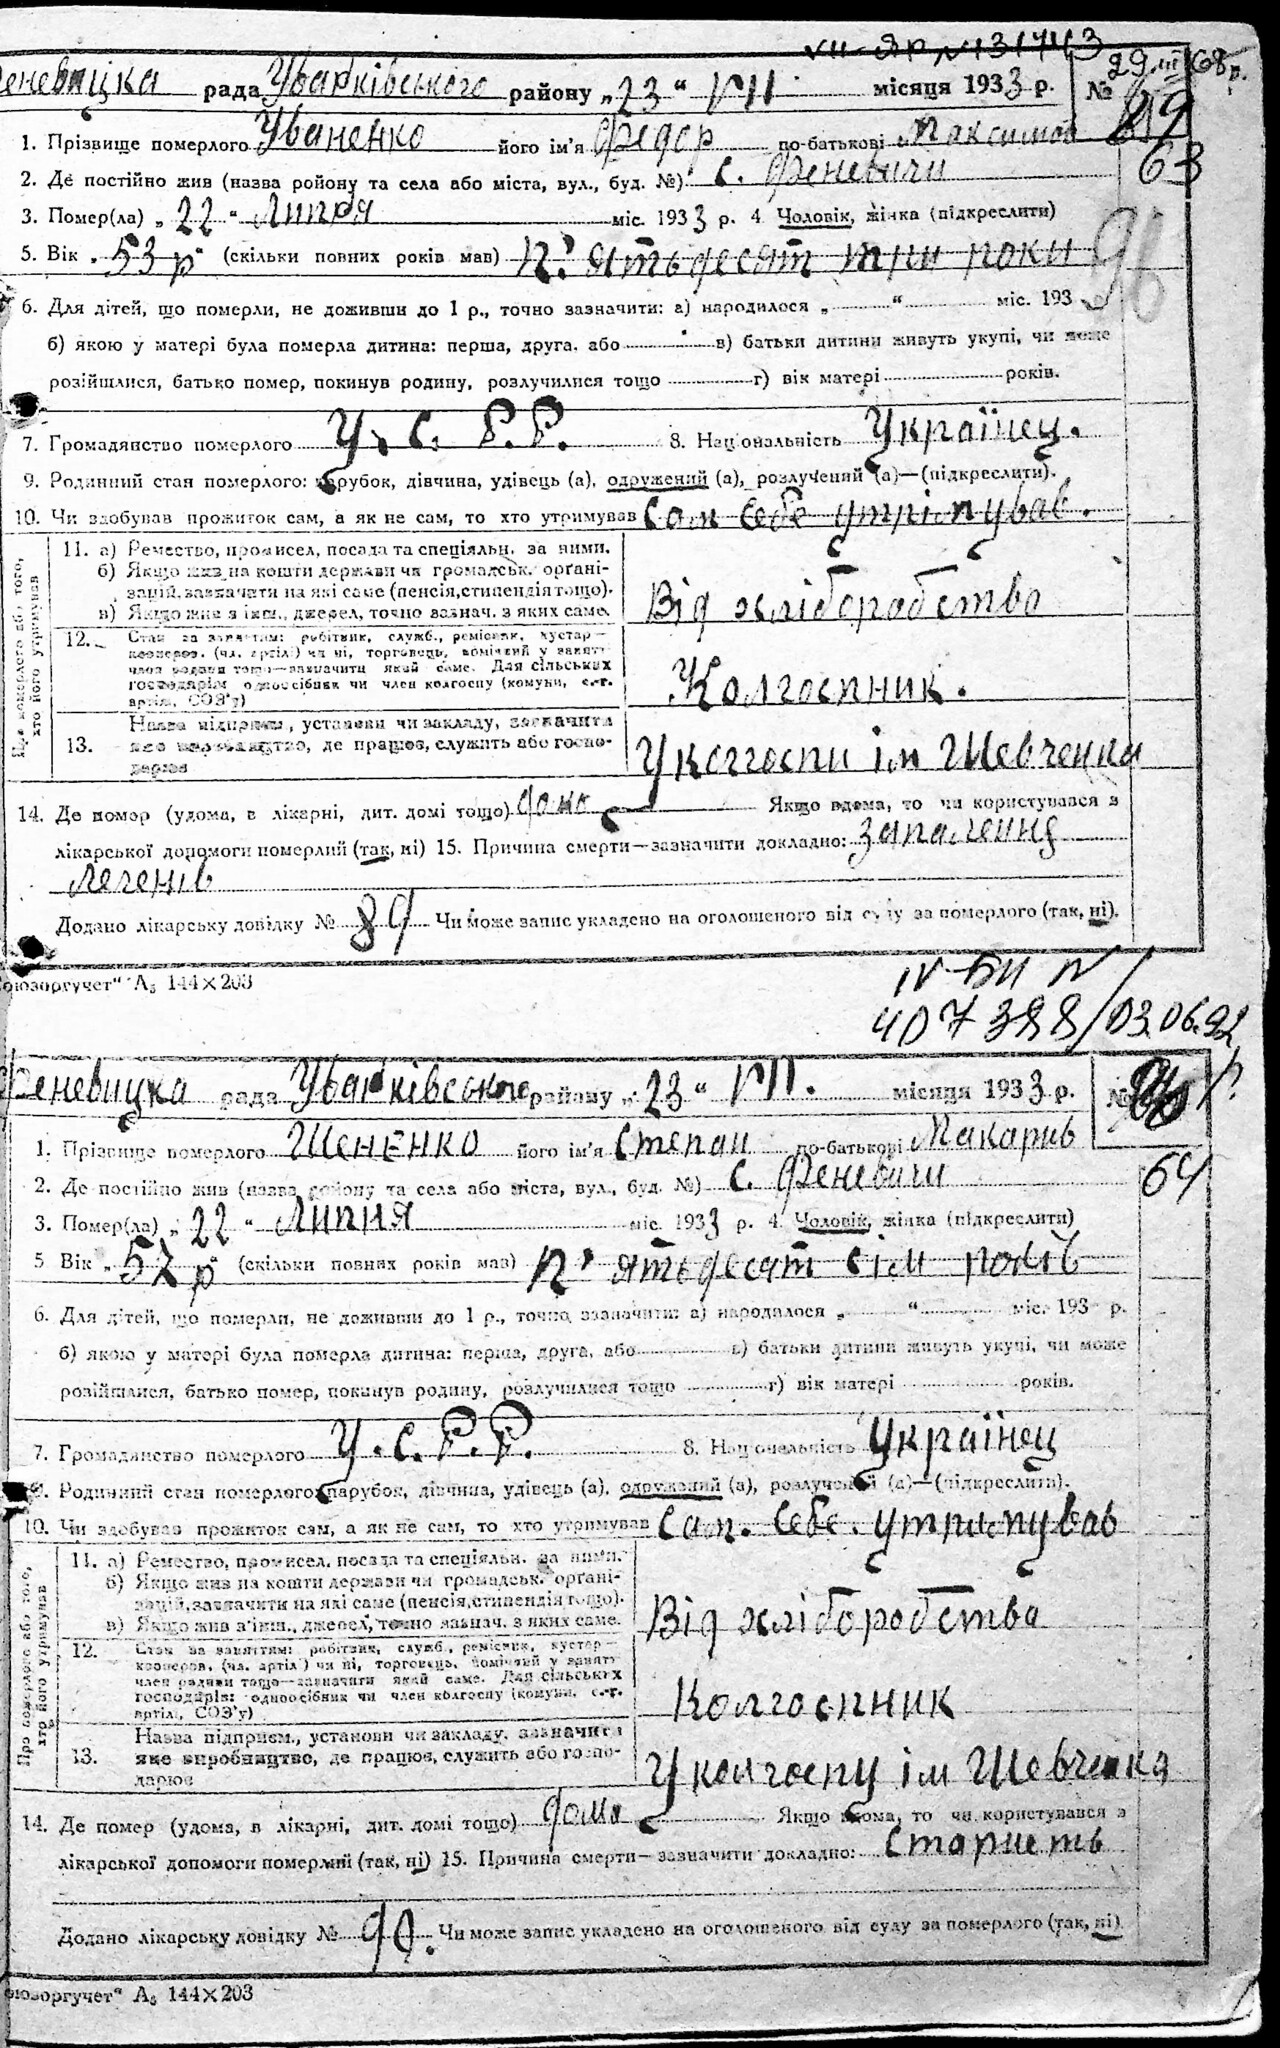 VII-ЯР № 131743
29 III 68 р.
Феневицка рада Іванківського району „23“ VII місяця 1933 р. № 89
1. Прізвище померлого Іваненко його ім'я Федор по-батькові Максимов
63
2. Де постійно жив (назва ройону та села або міста, вул., буд. №) с. Феневичи
3. Помер(ла) „22“ Липня міс. 1933 р. 4. Чоловік, жінка (підкреслити)
5. Вік „53 р“ (скільки повних років мав) п'ятьдесят три роки
96
6. Для дітей, що померли, не доживши до 1 р., точно зазначити: а) народилося „ “ міс. 193 р.
б) якою у матері була померла дитина: перша, друга, або в) батьки дитини живуть укупі, чи може
розійшлися, батько помер, покинув родину, розлучилися тощо г) вік матері років.
7. Громадянство померлого У. С. Р. Р. 8. Національність Українец.
9. Родинний стан померлого: парубок, дівчина, удівець (а), одружений (а), розлучений (а)—(підкреслити).
10. Чи здобував прожиток сам, а як не сам, то хто утримував Сам себе утрімував.
Про померлого або того, хто його утримував
11. а) Ремество, промисел, посада та спеціяльн. за ними.
б) Якщо жив на кошти держави чи громадськ. орґані-
зацій, зазначити на які саме (пенсія, стипендія тощо).
в) Якщо жив з інш., джерел, точно зазнач. з яких саме.
Від хліборобства
12. Стан за заняттям: робітник, служб., ремісник, кустар—
кооперов. (чл. артілі) чи ні, торговець, помічний у занятт
член родини тощо—зазначити який саме. Для сільських
господарів: одноосібник чи член колгоспу (комуни, с.-г.
артіл., СОЗ'у)
Колгоспник.
13. Назва підприєм., установи чи закладу, зазначити
яке виробництво, де працює, служить або госпо-
дарює
У колгоспи ім Шевченка
14. Де помер (удома, в лікарні, дит. домі тощо) дома Якщо вдома, то чи користувався з
лікарської допомоги померлий (так, ні) 15. Причина смерти—зазначити докладно: запалення
легенів
Додано лікарську довідку № 89 Чи може запис укладено на оголошеного від суду за померлого (так, ні).
Союзоргучет" А5 144×203
IV-БИ №
407388/03.06.92 р.
Феневицка рада Іванківського району „23“ VII. місяця 1933 р. №
1. Прізвище померлого Шененко його ім'я Степан по-батькові Макарив
64
2. Де постійно жив (назва ройону та села або міста, вул., буд. №) с. Феневичи
3. Помер(ла) „22“ Липня міс. 1933 р. 4. Чоловік, жінка (підкреслити)
5 Вік „57 р“ (скільки повних років мав) п'ятьдесят сім років
6. Для дітей, що померли, не доживши до 1 р., точно зазначити: а) народилося „ “ міс. 193 р.
б) якою у матері була померла дитина: перша, друга, або в) батьки дитини живуть укупі, чи може
розійшлися, батько помер, покинув родину, розлучилися тощо г) вік матері років.
7. Громадянство померлого У. С. Р. Р. 8. Національність Українец
9. Родинний стан померлого: парубок, дівчина, удівець (а), одружений (а), розлучений (а)—(підкреслити).
10. Чи здобував прожиток сам, а як не сам, то хто утримував Сам. себе. утримував
Про померлого або того, хто його утримував
11. а) Ремество, промисел, посада та спеціяльн. за ними.
б) Якщо жив на кошти держави чи громадськ. орґані-
зацій, зазначити на які саме (пенсія, стипендія тощо).
в) Якщо жив з інш., джерел, точно зазнач. з яких саме.
Від хліборобства
12. Стан за заняттям: робітник, служб., ремісник, кустар—
кооперов. (чл. артілі) чи ні, торговець, помічний у занятт
член родини тощо—зазначити який саме. Для сільських
господарів: одноосібник чи член колгоспу (комуни, с.-г.
артіл., СОЗ'у)
Колгоспник
13. Назва підприєм., установи чи закладу, зазначити
яке виробництво, де працює, служить або госпо-
дарює
У колгоспу ім Шевченка
14. Де помер (удома, в лікарні, дит. домі тощо) дома Якщо вдома, то чи користувався з
лікарської допомоги померлий (так, ні) 15. Причина смерти—зазначити докладно: старисть
Додано лікарську довідку № 90. Чи може запис укладено на оголошеного від суду за померлого (так, ні)
Союзоргучет" А5 144×203